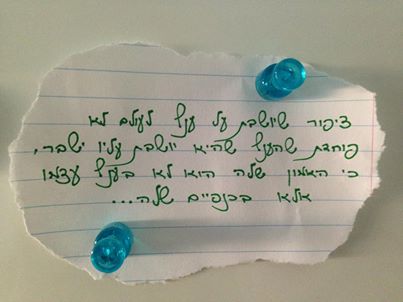 ציפור שיושבת על ענף לעולם לא
פוחדת שהענף שהיא יושבת עליו ישבר,
כי האמון שלה הוא לא בענף עצמו
אלא בכנפיים שלה...